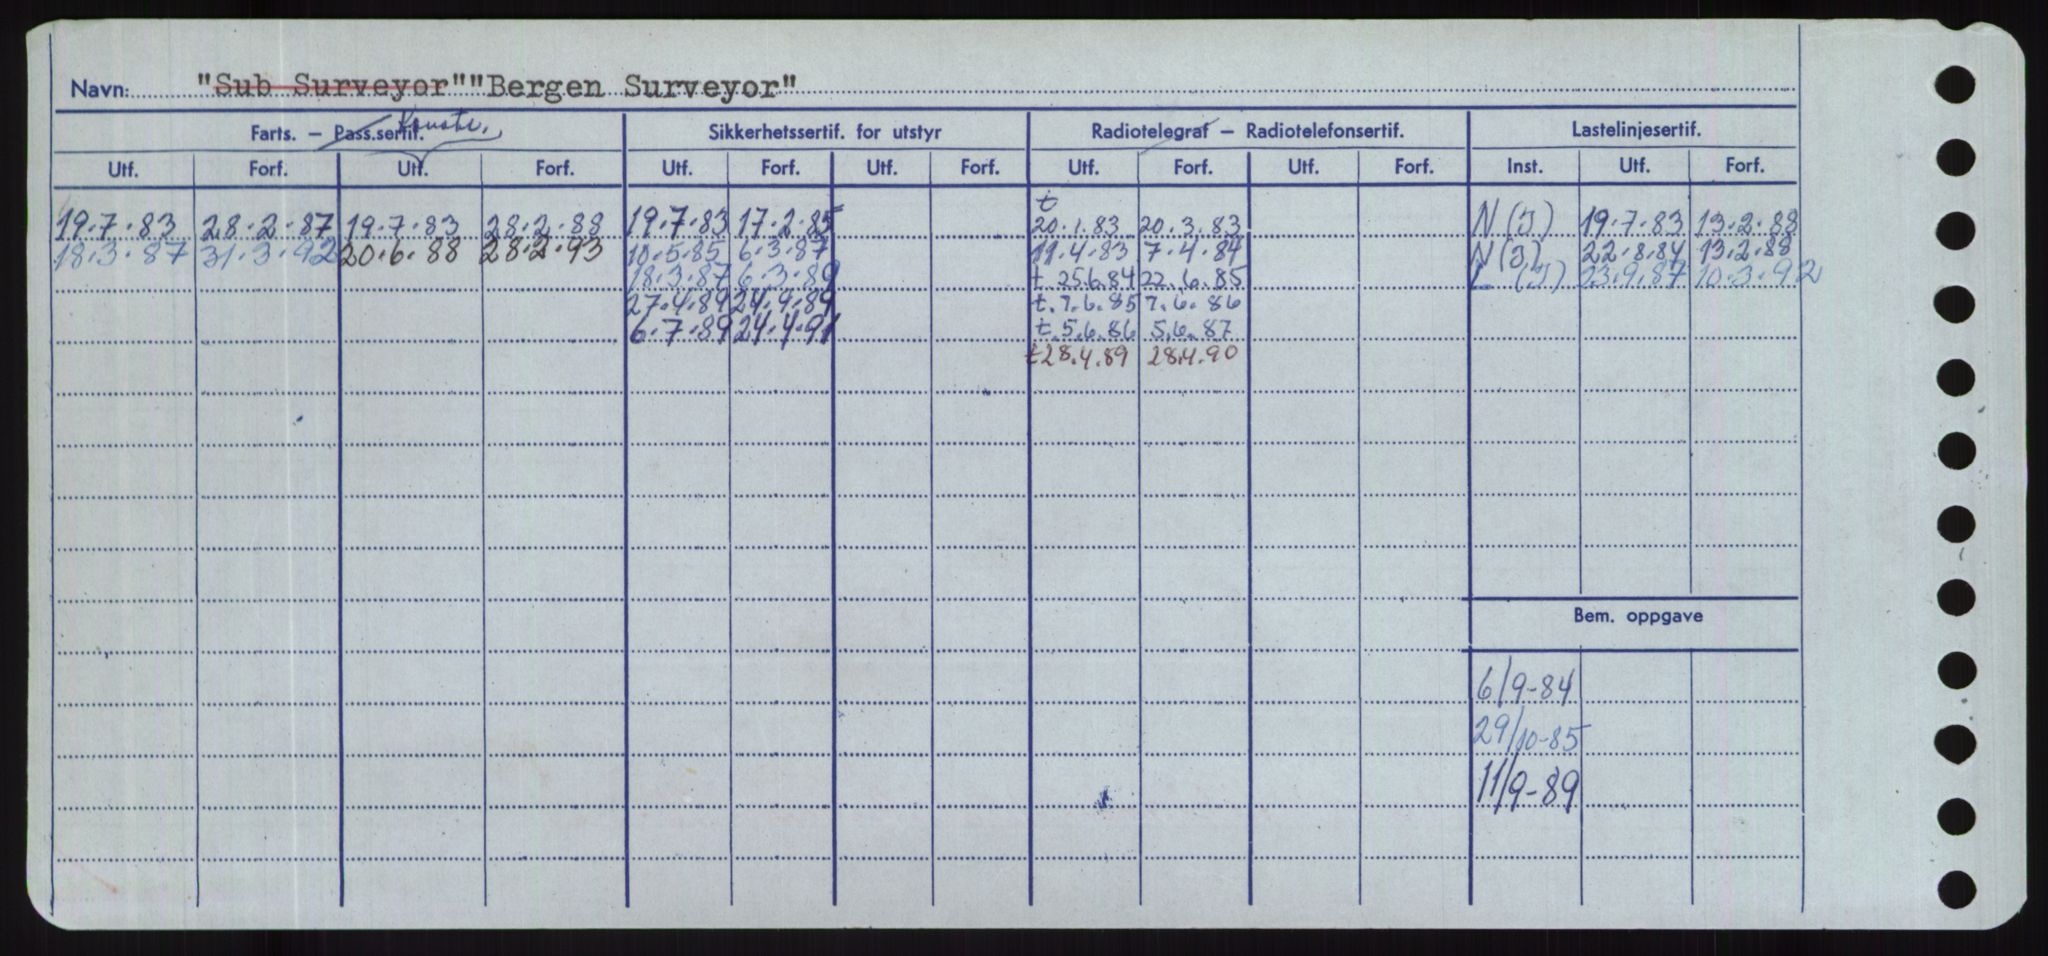 Navn: "Sub Surveyor" "Bergen Surveyor"
Farts. – Pass.sertif. Konstr. Sikkerhetssertif. for utstyr Radiotelegraf – Radiotelefonsertif. Lastelinjesertif.
Utf. Forf. Utf. Forf. Utf. Forf. Utf. Forf. Utf. Forf. Utf. Forf. Inst. Utf. Forf.
19.7.83 28.2.87 19.7.83 28.2.88 19.7.83 17.2.85 t 20.1.83 20.3.83 N (J) 19.7.83 13.2.88
18.3.87 31.3.92 20.6.88 28.2.93 10.5.85 6.3.87 11.4.83 7.4.84 N (J) 22.8.84 13.2.88
18.3.87 6.3.89 t. 25.6.84 22.6.85 L (J) 23.9.87 10.3.92
27.4.89 24.9.89 t. 7.6.85 7.6.86
6.7.89 24.4.91 t. 5.6.86 5.6.87
t 28.4.89 28.4.90
Bem. oppgave
6/9-84
29/10-85
11/9-89